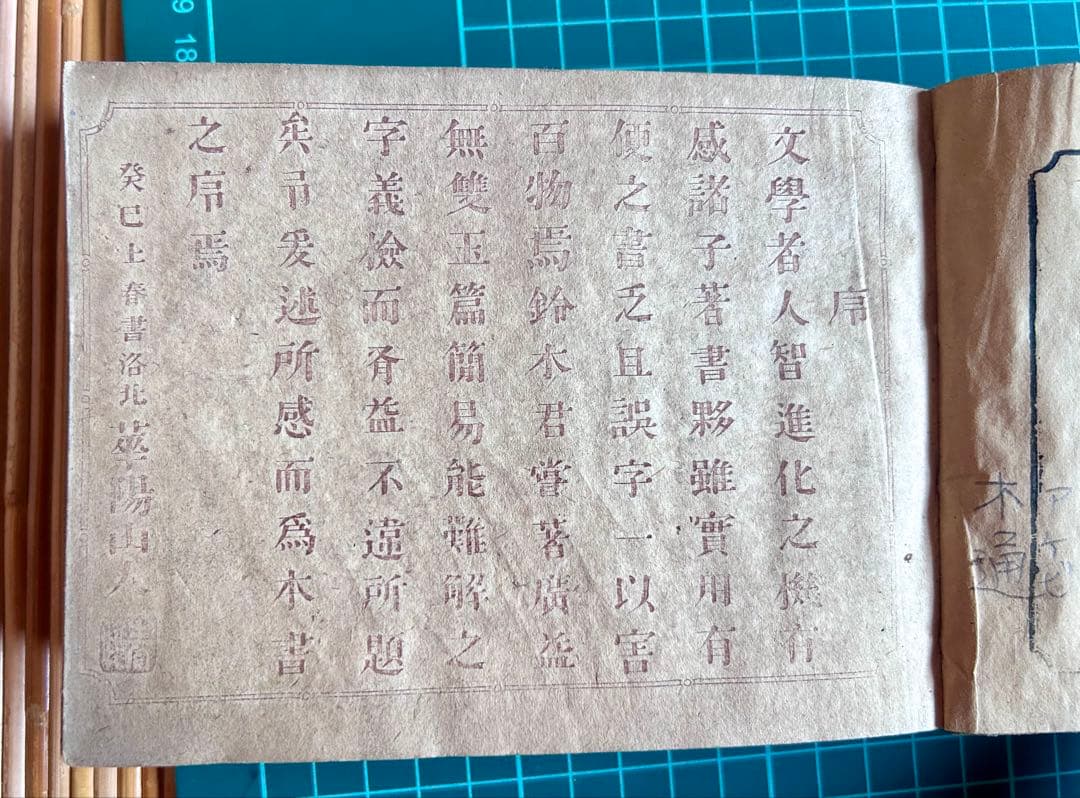 序
文學者人智進化之機有
感諸子著書夥雖實用有
便之書乏且誤字一以害
百物焉鈴木君嘗著廣益
無雙玉篇簡易能難解之
字義撿而胥益不違所題
矣爰述所感而爲本書
之序焉
癸巳上春書洛北陽山人
アケビ
木通
18